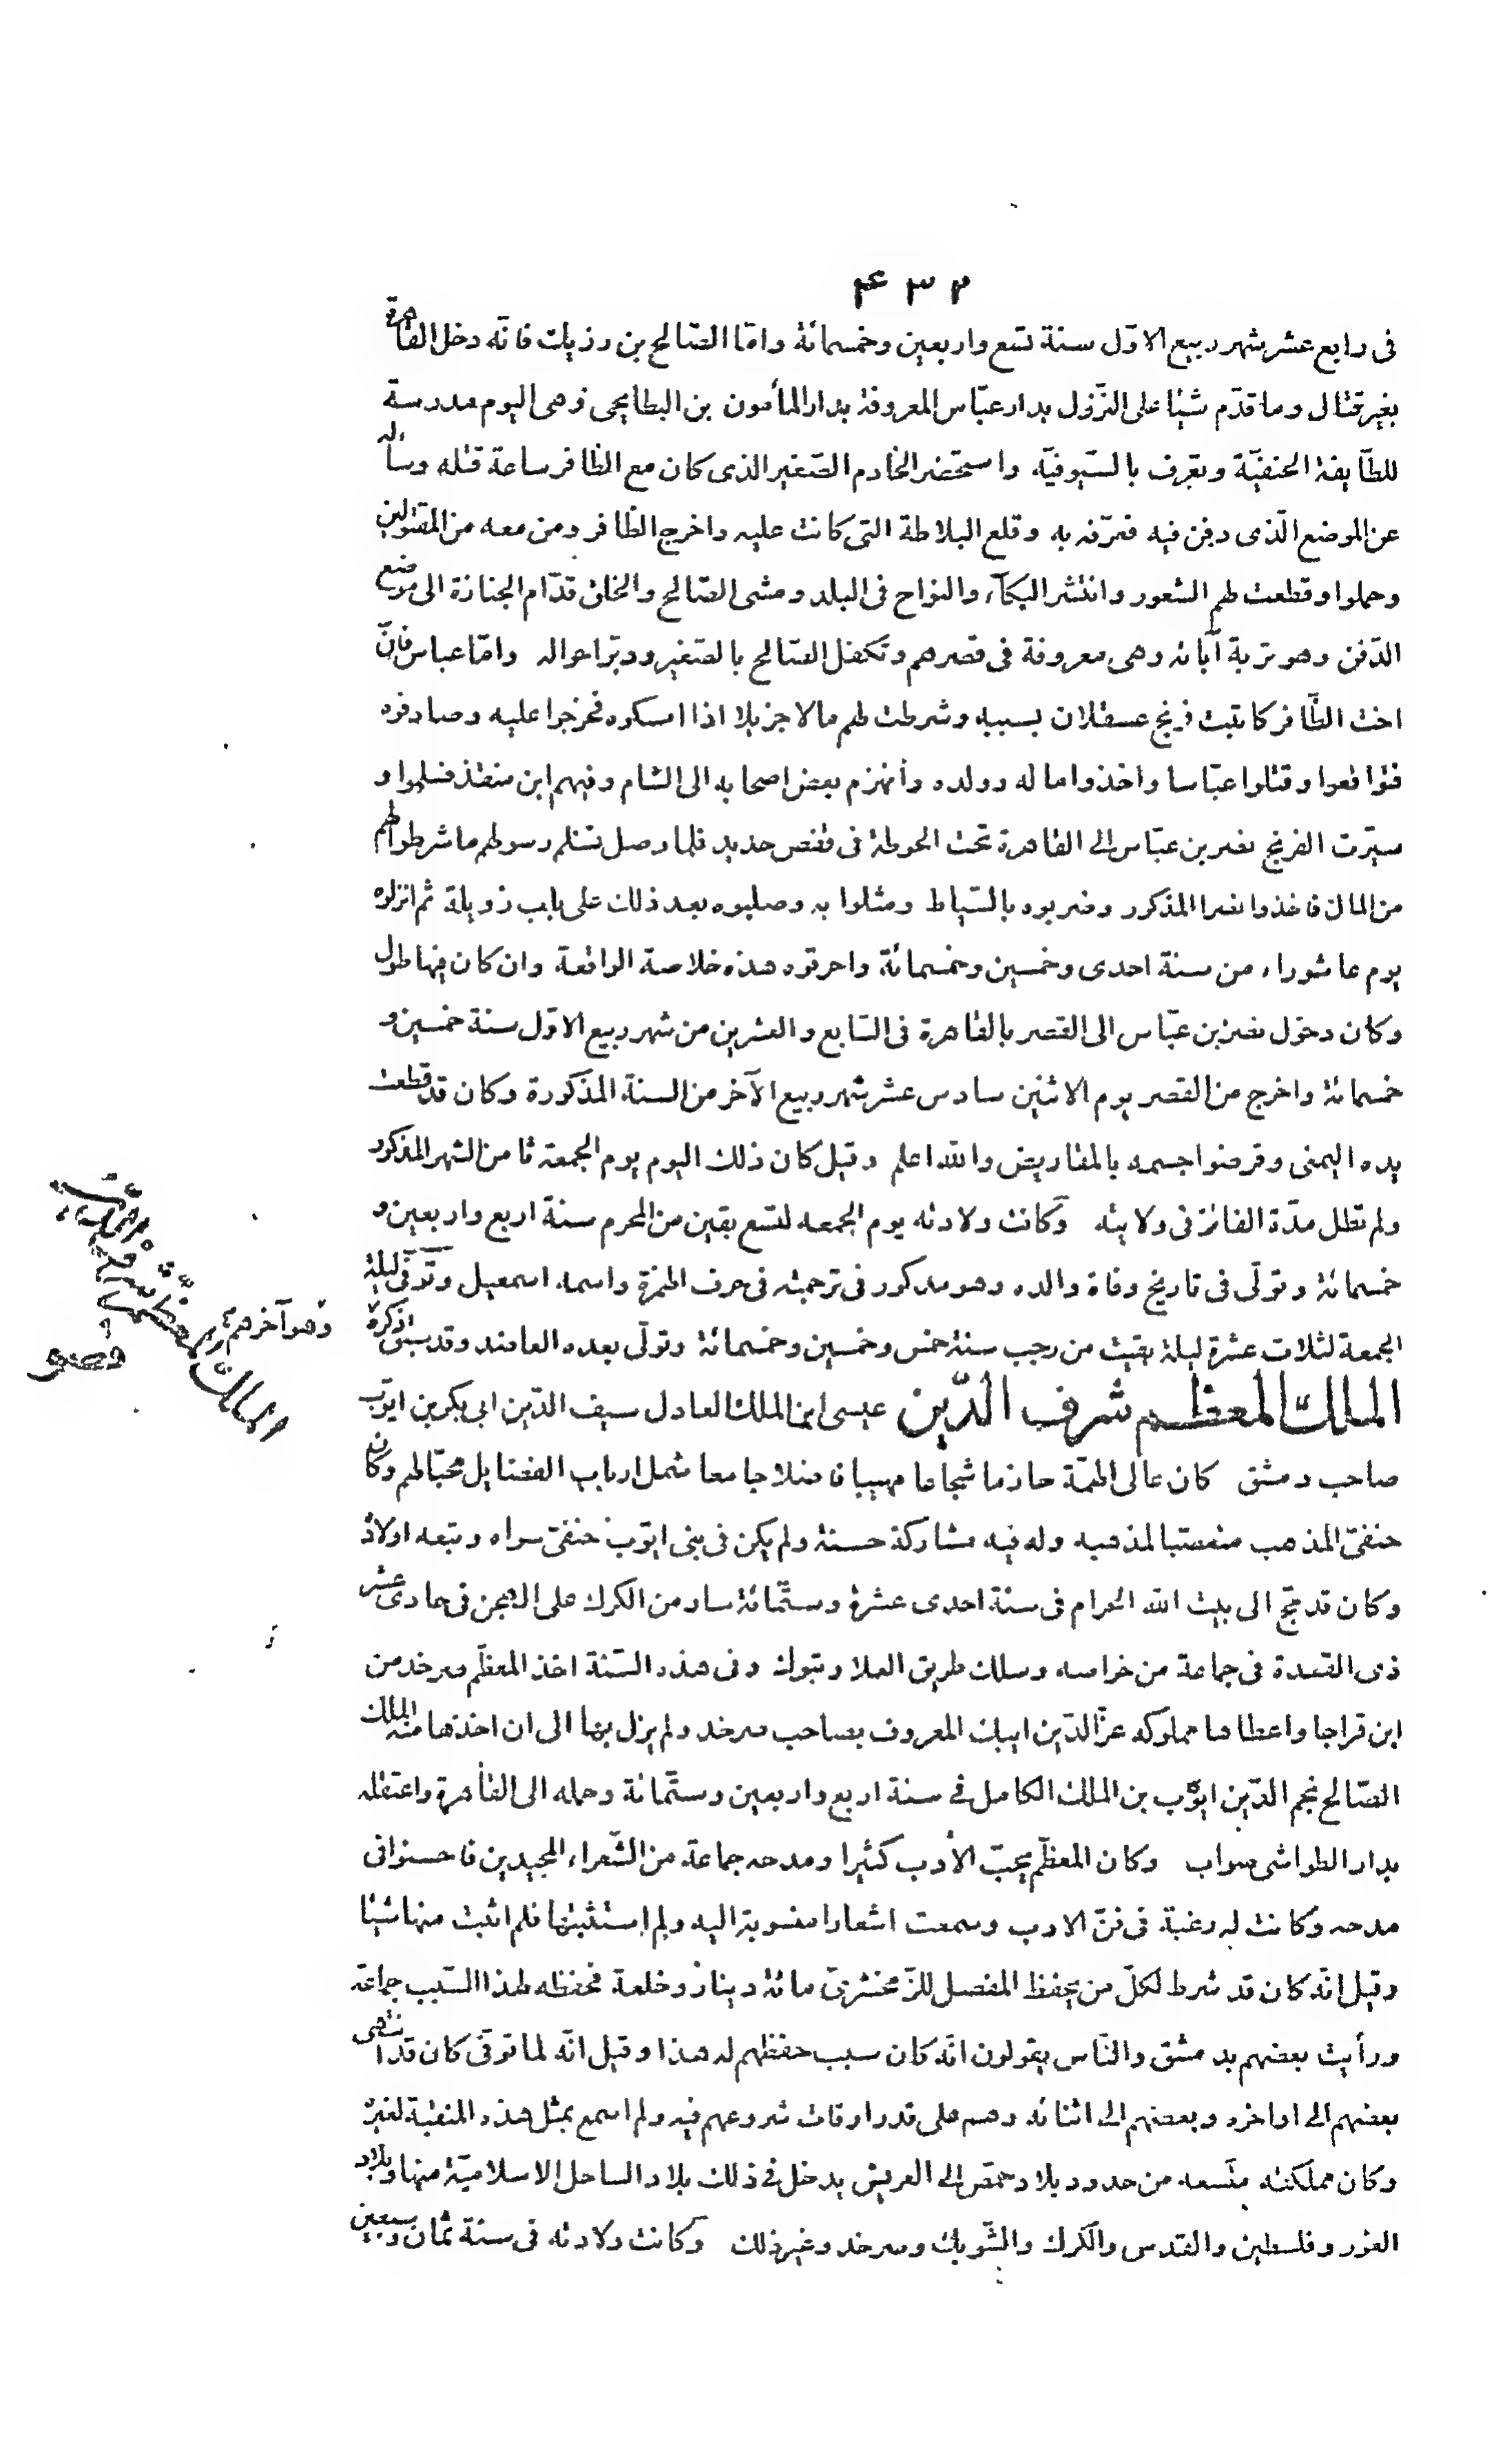 ۴۳۲
فى رابع عشر شهر ربيع الاوّل سنة تسع واربعين وخمسمائة وامّا الصّالح بن رزيك فانّه دخل القاهرة
بغير قتال وما قدّم شيئا على النّزول بدار عبّاس المعروفة بدار المأمون بن البطايحى وهى اليوم مدرسة
للطّايفة الحنفيّة وتعرف بالسّيوفيّة واستحضر الخادم الصّغير الذى كان مع الظافر ساعة قتله وسأله
عن الموضع الّذى دفن فيه فعرّفه به وقلع البلاطة التى كانت عليه واخرج الظّافر ومن معه من المقتولين
وحملوا وقطعت لهم الشعور وانتشر البكآء والنواح فى البلد ومشى الصّالح والخلق قدّام الجنازة الى موضع
الدّفن وهو تربة آبائه وهى معروفة فى قصرهم وتكفل الصّالح بالصّغير ودبّر احواله وامّا عباس فانّ
اخت الظّافر كاتبت فرنج عسقلان بسببه وشرطت لهم مالا جزيلا اذا امسكوه فخرجوا عليه وصادفوه
فتواقعوا وقتلوا عبّاسا واخذوا ماله وولده وأنهزم بعض اصحابه الى الشام وفيهم ابن منقذ فسلموا و
سيّرت الفرنج نصر بن عبّاس الى القاهرة تحت الحوطة فى قفص حديد فلما وصل تسلم رسولهم ما شرطوا لهم
من المال فاخذوا نصرا المذكور وضربوه بالسّياط ومثلوا به وصلبوه بعد ذلك على باب زويلة ثم انزلوه
يوم عاشوراء من سنة احدى وخمسين وخمسمائة واحرقوه هذه خلاصة الواقعة وان كان فيها طول
وكان دخول نصر بن عبّاس الى القصر بالقاهرة فى السّابع والعشرين من شهر ربيع الاوّل سنة خمسين و
خمسمائة واخرج من القصر يوم الاثنين سادس عشر شهر ربيع الآخر من السنة المذكورة وكان قد قطعت
يده اليمنى وقرضوا جسمه بالمقاريض والله اعلم وقيل كان ذلك اليوم يوم الجمعة ثامن الشهر المذكور
ولم تطل مدّة الفائز فى ولايته وكانت ولادته يوم الجمعه لتسع بقين من المحرم سنة اربع واربعين و
خمسمائة وتولّى فى تاريخ وفاة والده وهو مذكور فى ترجمته فى حرف الهمزة واسمه اسمعيل وتوفّى ليلة
الجمعة لثلاث عشرة ليلة بقيت من رجب سنة خمس وخمسين وخمسمائة وتولّى بعده العاضد وقد سبق ذكره
وهو آخرهم
الملك المعظم شرف الدّين عيسى ابن الملك العادل سيف الدّين ابى بكر بن ايّوب
صاحب دمشق كان عالى الهمّة حازما شجاعا مهيبا فاضلا جامعا شمل ارباب الفضايل محبّا لهم وكان
حنفىّ المذهب متعصّبا لمذهبه وله فيه مشاركة حسنة ولم يكن فى بنى ايّوب حنفىّ سواه وتبعه اولاده
وكان قد حجّ الى بيت الله الحرام فى سنة احدى عشرة وستّمائة سار من الكرك على الهجن فى حادى عشر
ذى القعدة فى جماعة من خواصه وسلك طريق العلا وتبوك وفى هذه السّنة اخذ المعظّم صرخد من
ابن قراجا واعطاها مملوكه عزّ الدّين ايبك المعروف بصاحب صرخد ولم يزل بها الى ان اخذها منه الملك
الصّالح نجم الدّين ايّوب بن الملك الكامل فى سنة اربع واربعين وستّمائة وحمله الى القاهرة واعتقله
بدار الطواشى صواب وكان المعظّم يحبّ الأدب كثيرا ومدحه جماعة من الشّعراء المجيدين فاحسنوا فى
مدحه وكانت له رغبة فى فنّ الادب وسمعت اشعارا منسوبة اليه ولم استثبتها فلم اثبت منها شيئا
وقيل انّه كان قد شرط لكلّ من يحفظ المفصل للزّمخشرىّ مائة دينار وخلعة فحفظه لهذا السّبب جماعة
ورأيت بعضهم بدمشق والنّاس يقولون انّه كان سبب حفظهم له هذا وقيل انّه لما توفّى كان قد انتهى
بعضهم الى اواخره وبعضهم الى اثنائه وهم على قدر اوقات شروعهم فيه ولم اسمع بمثل هذه المنقبة لغيره
وكان مملكته متّسعه من حدود بلاد حمص الى العريش يدخل فى ذلك بلاد الساحل الاسلاميّة منها وبلاد
الغور وفلسطين والقدس والكرك والشّوبك وصرخد وغير ذلك وكانت ولادته فى سنة ثمان وسبعين